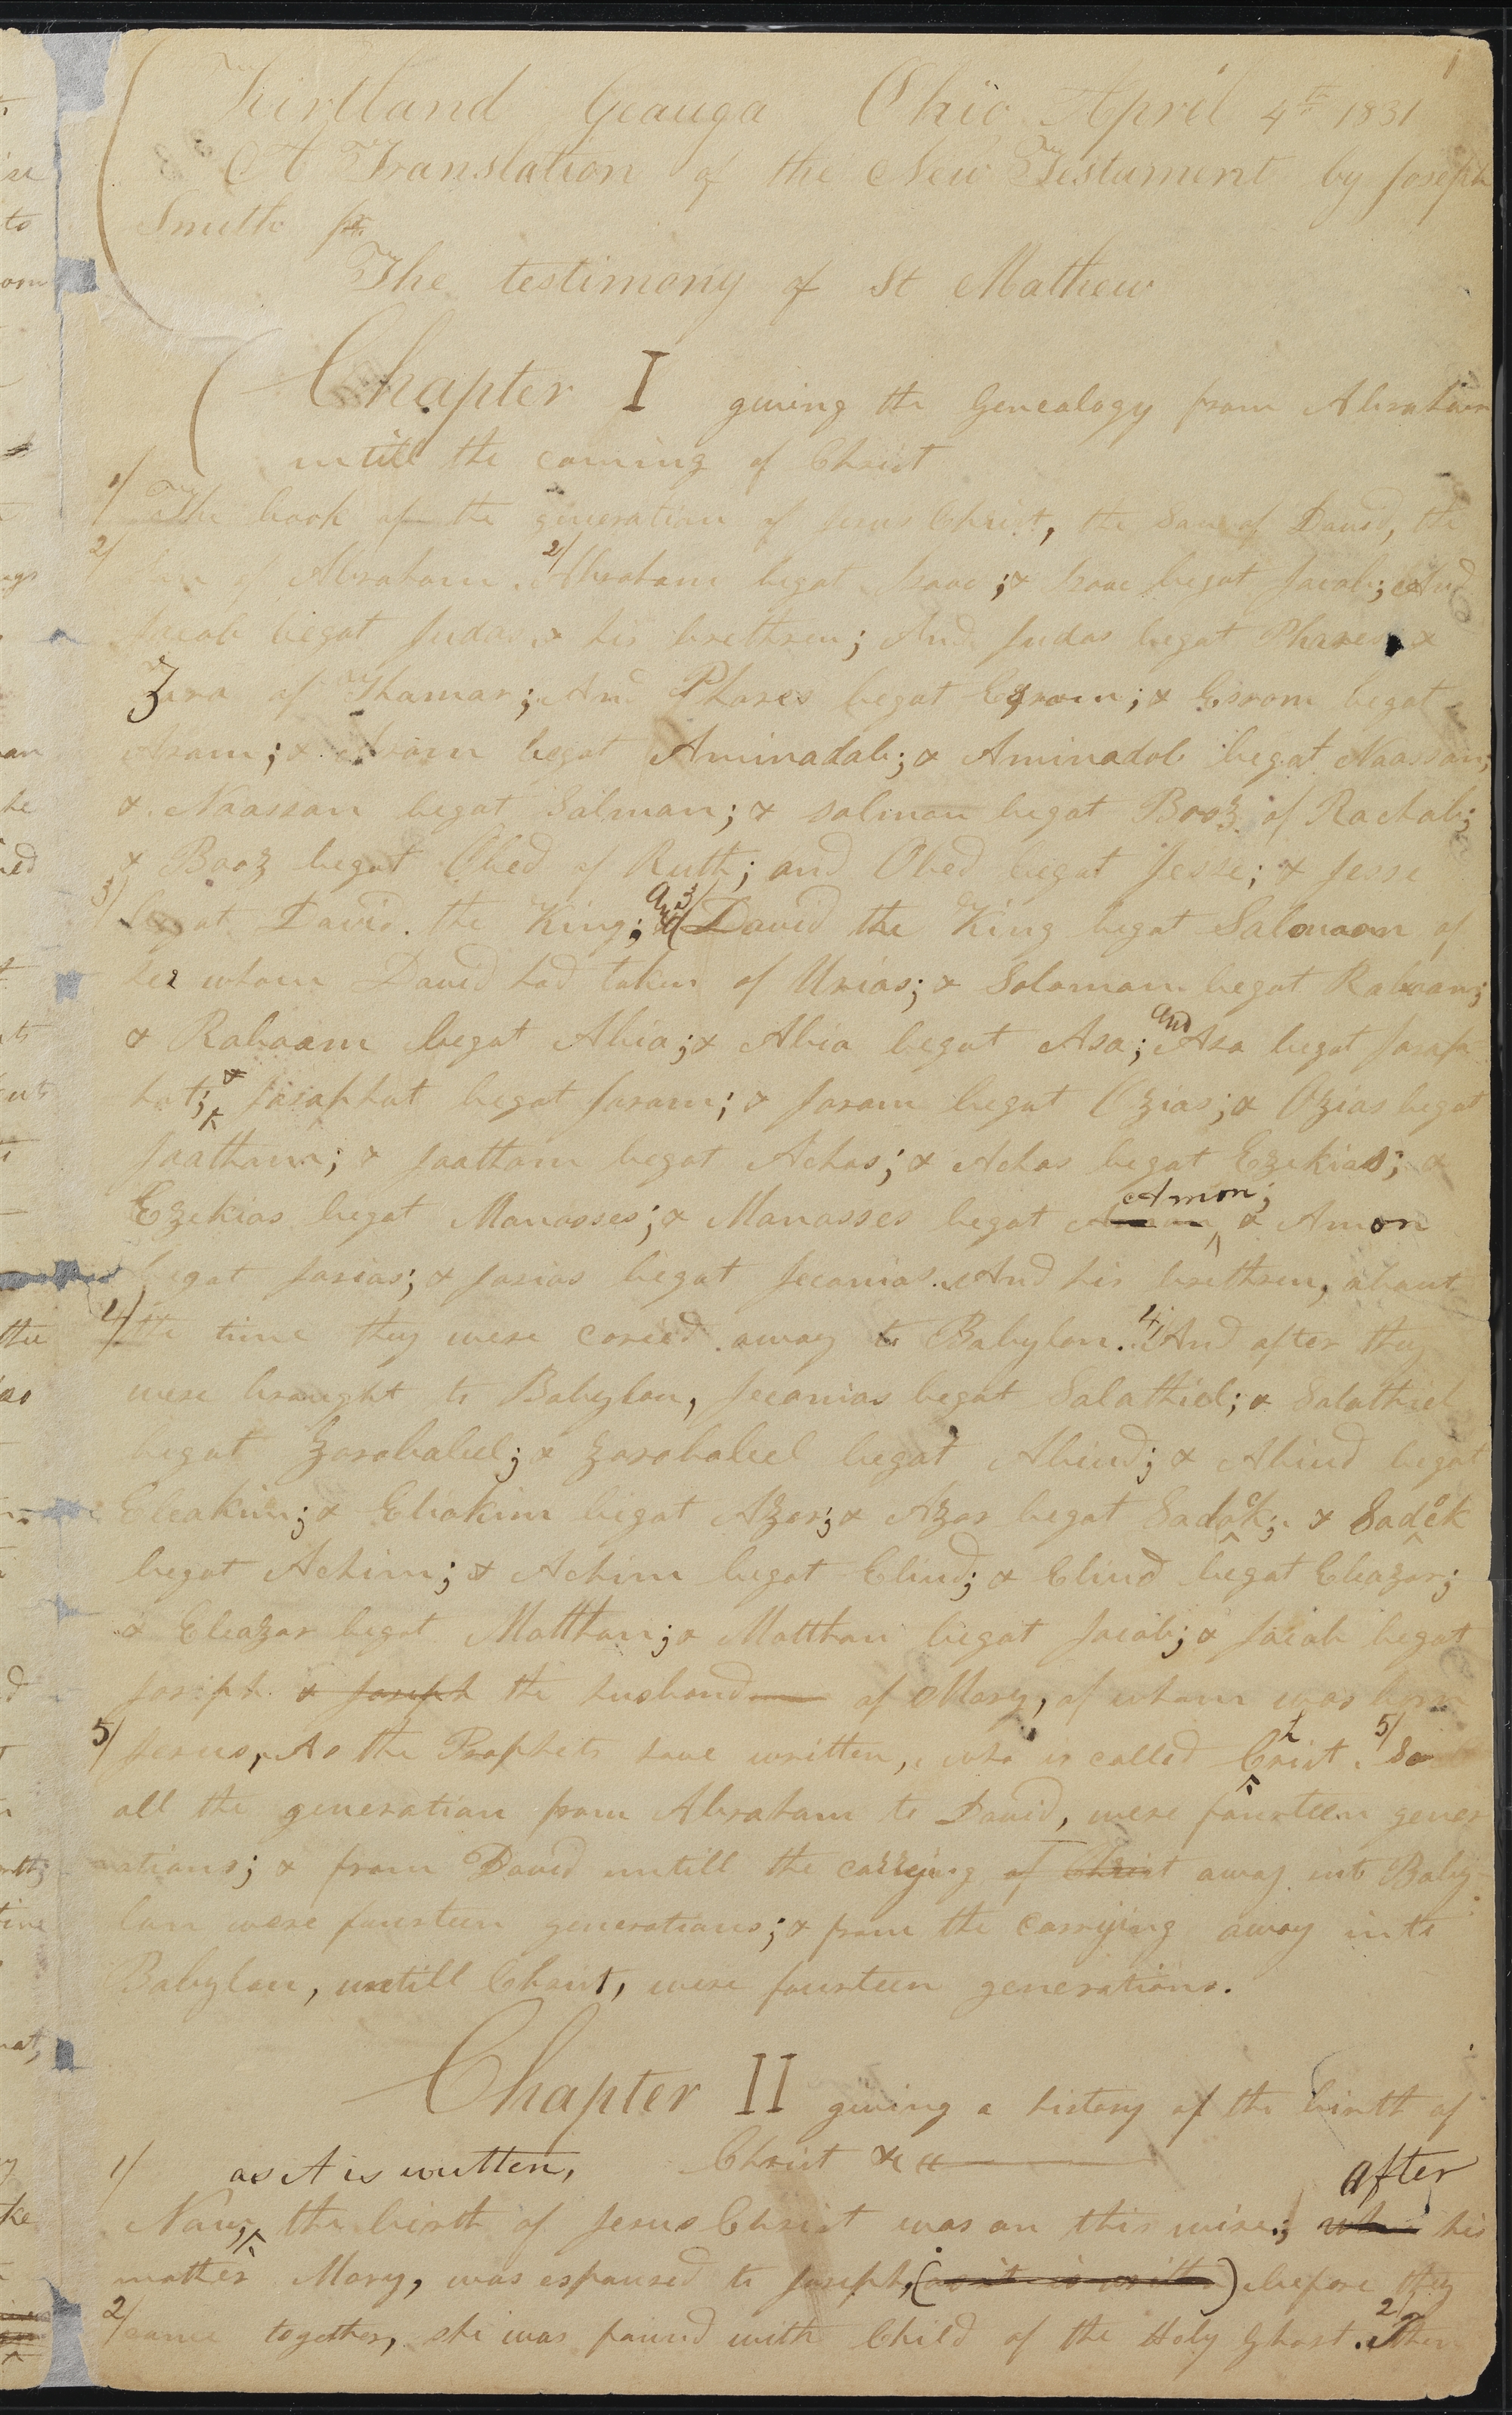 1
Kirtland Geauga Ohio April 4th 1831
A Translation of the New Testament by Joseph
Smith jr.
The testimony of St Mathew
Chapter I giving the Genealogy from Abraham
untill the coming of Christ
1/ The book of the generation of Jesus Christ, the son of David, the
2/ Son of Abraham. 2/ Abraham begat Isaac; & Isaac begat Jacob; And
Jacob begat Judas & his brethren; And Judas begat Phares &
Zara of Thamar; And Phares begat Esrom; & Esrom begat
Aram; & Aram begat Aminadab; & Aminadab begat Naasson;
& Naasson begat Salman; & Salman begat Booz of Rachab;
& Booz begat Obed of Ruth; and Obed begat Jesse; & Jesse
3/ begat David the King; And 3/ David the King begat Solomon of
her whom David had taken of Urias; & Solomom begat Roboam;
& Roboam begat Abia; & Abia begat Asa; and Asa begat Josap
hat; & Josaphat begat Joram; & Joram begat Ozias; & Ozias begat
Joatham; & Joatham begat Achas; & Achas begat Ezekias; &
Ezekias begat Manasses; & Manasses begat Amon; & Amon
begat Josias; & Josias begat Jeconias And his brethren, about
4/ the time they were caried away to Babylon. 4/ And after they
were brought to Babylon, Jeconias begat Salathiel; & Salathiel
begat Zorobabel; & Zorobabel begat Abiud; & Abiud begat
Eleakim; & Eliakim begat Azor; & Azor begat Sadock; & Sadock
begat Achim; & Achim begat Eliud; & Eliud begat Eleazar;
& Eleazar begat Matthan; & Matthan begat Jacob; & Jacob begat
Joseph & Joseph the husband of Mary, of whom was born
5/ Jesus, As the Prophets have written, who is called Christ. 5/ So
all the generation from Abraham to David, were fourteen gener
rations; & from David untill the carrying of Christ away into Baby
lon were fourteen generations; & from the carrying away into
Babylon, untill Christ, were fourteen generations.
Chapter II giving a history of the birth of
Christ &c
1/ as it is written, after
Now, the birth of Jesus Christ was on this wise; his
mother Mary, was espoused to Joseph, (as it is written) before they
2/ came together, she was found with Child of the Holy Ghost. 2/ Then